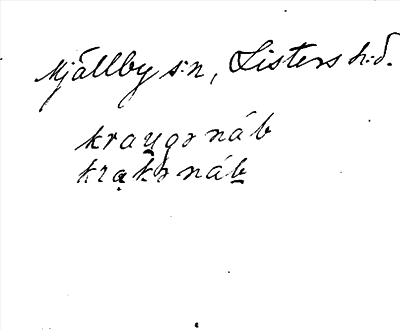 Mjällby s:n, Listers h:d.
kraugə náb
krakə náb